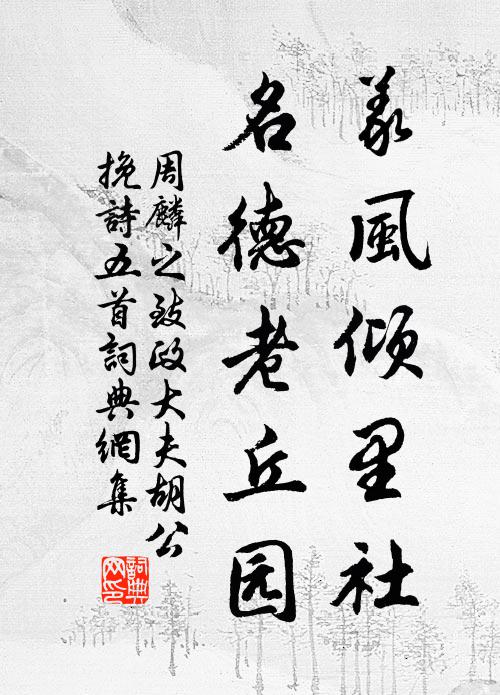 义風倾里社
名德老丘园
周麟之致政大夫胡公
挽詩五首詞典網集
詞典网印